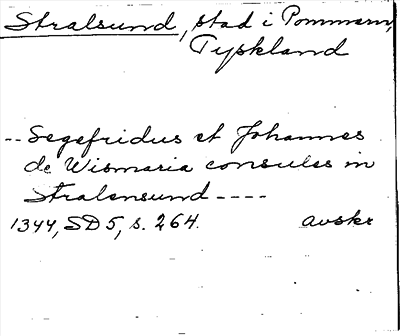 Stralsund, stad i Pommern,
Tyskland
-- Segefridus et Johannes
de Wismaria consules in
Stralensund ----
1344, SD 5, s. 264. avskr